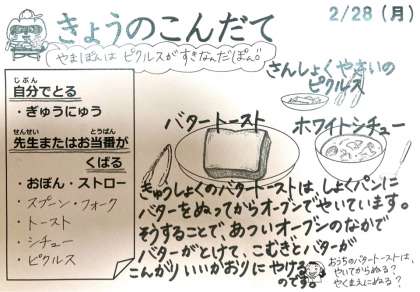 きょうのこんだて
2/28（月）
やまぽんは ピクルスが すきなんだぽん。
さんしょくやさいの
ピクルス
じぶん
自分でとる
・ぎゅうにゅう
せんせい とうばん
先生またはお当番が
くばる
・おぼん・ストロー
・スプーン・フォーク
・トースト
・シチュー
・ピクルス
バタートースト
ホワイトシチュー
きゅうしょくのバタートーストは、しょくパンに
バターをぬってからオーブンでやいています。
そうすることで、あついオーブンのなかで
バターがとけて、こむぎとバターが
こんがりいいかおりにやける
のです。
おうちのバタートーストは、
やいてからぬる？
やくまえにぬる？